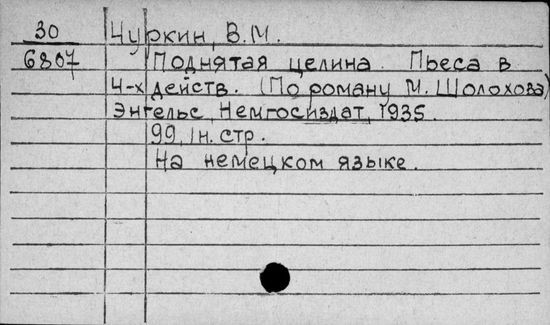 30 Чуркин, В.М.
6807 Поднятая целина. Пьеса в
4-х действ. (По роману М. Шолохова)
Энгельс, Немгосиздат, 1935.
99, 1н. стр.
На немецком языке.